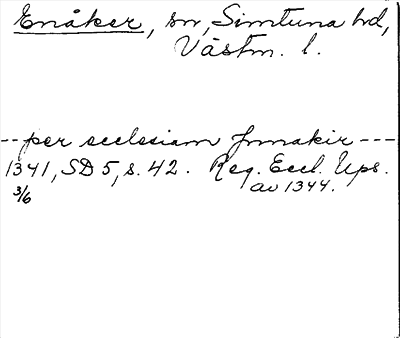 Enåker, sn, Simtuna hd,
Västm. l.
-- per ecclesiam Jnnakir ---
1341, SD 5, s. 42. Reg. Eccl. Ups.
3/6 av 1344.